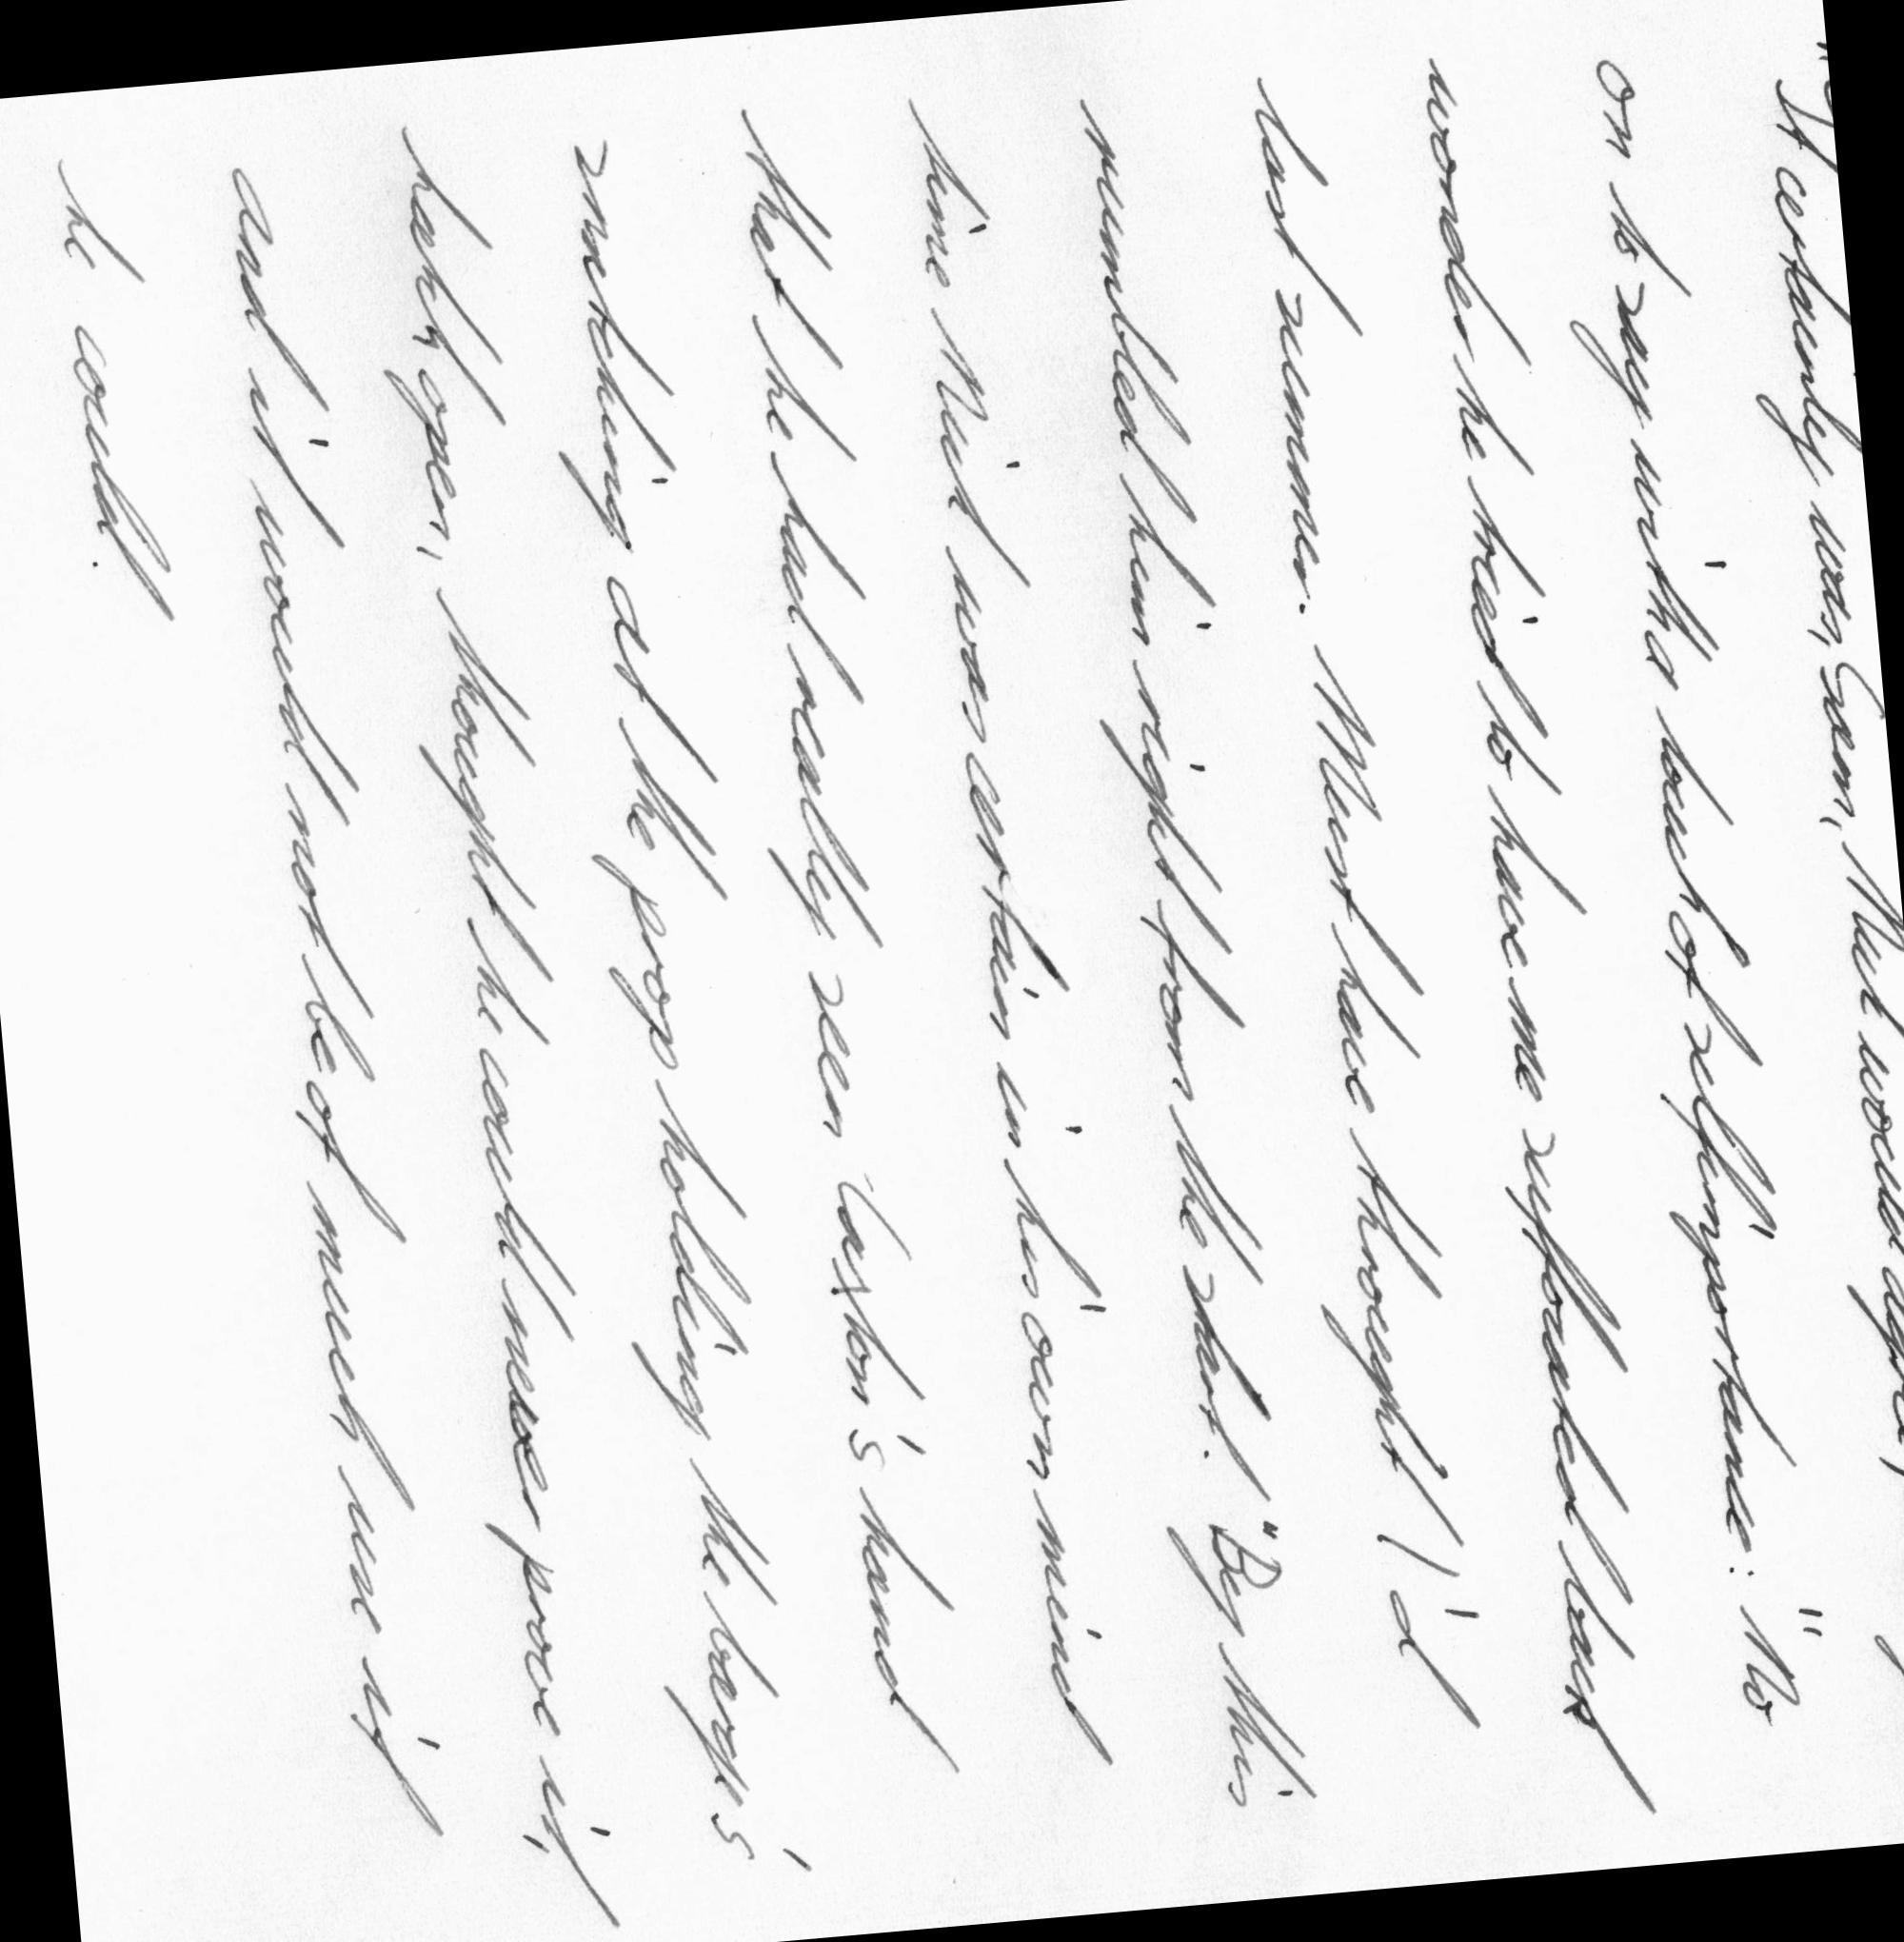 "It certainly was, Sam, Nick would agree,
on to say with a touch of selfimportance: "No
wonder he tried to have me suffocated back
last summer. Must have thought I'd
rumbled him right from the start." By this
time Nick was certain in his own mind
that he had really seen Caxton's hand
snatching at the prop holding the barge's
hatch open, thought he could never prove it,
and it would not be of much use if
he could.